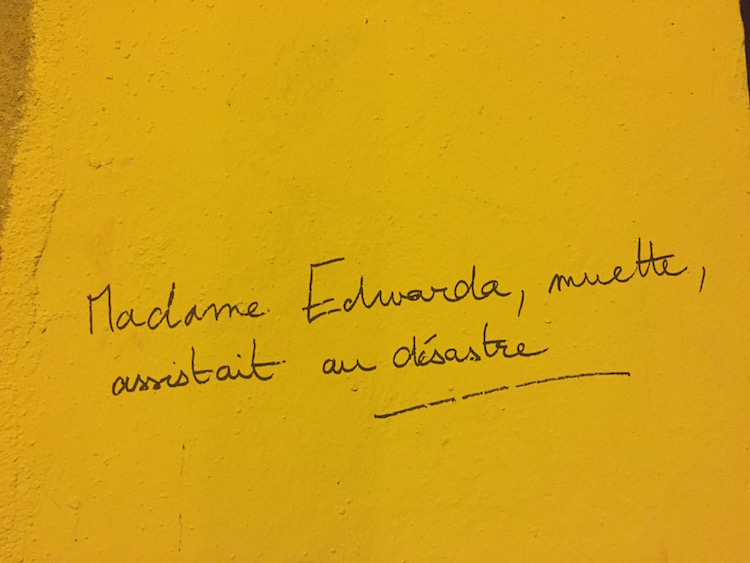 Madame Edwarda, muette,
assistait au désastre